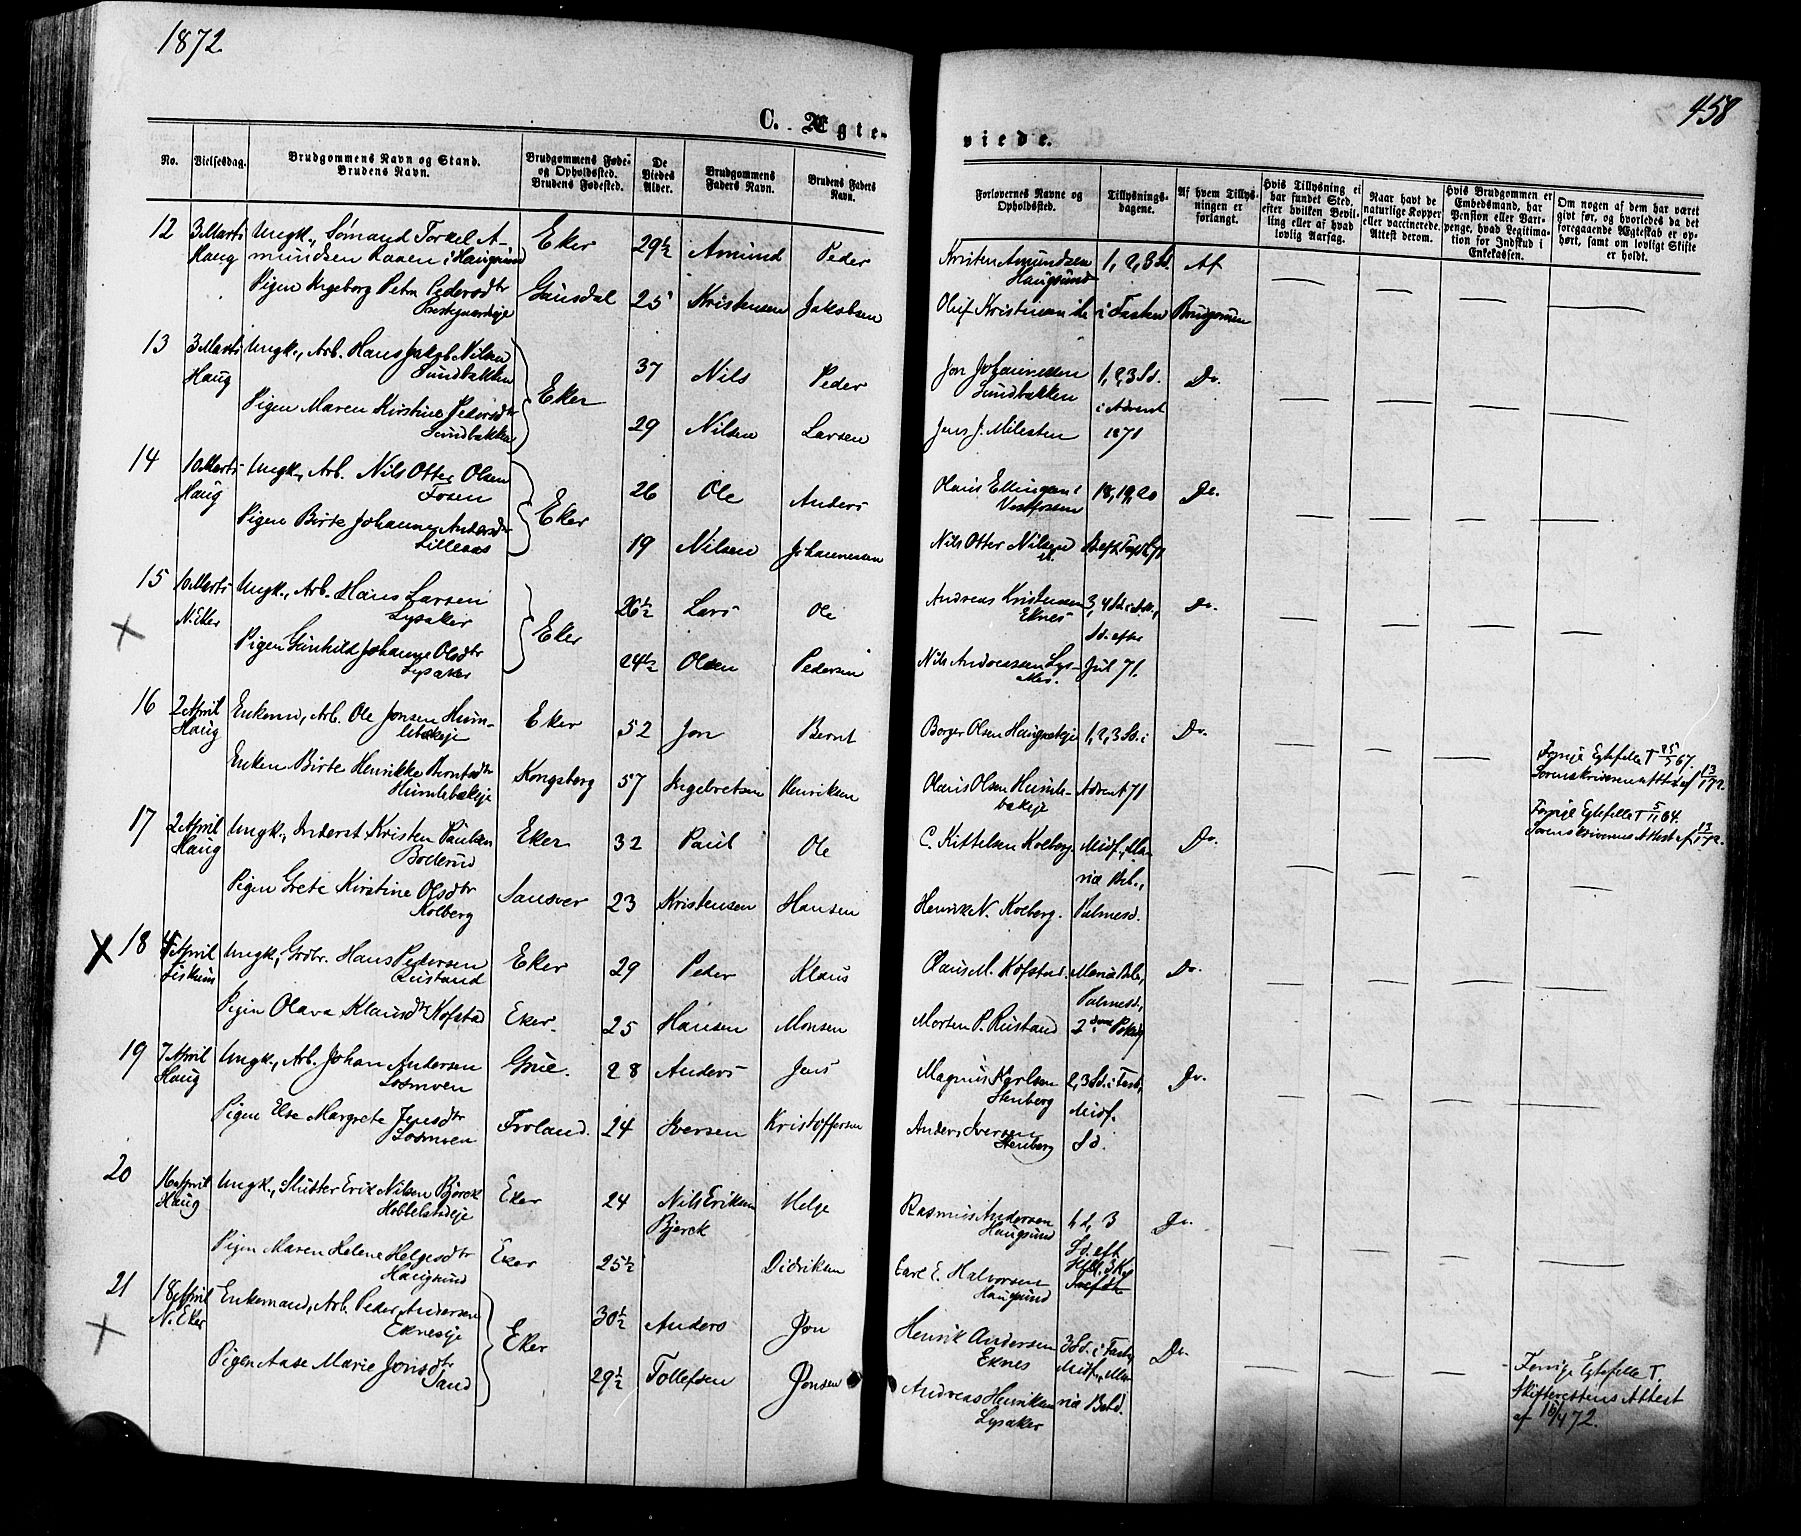 1872
458
C. Ægte-
viede.
No.
Vielsesdag.
Brudgommens Navn og Stand.
Brudens Navn.
Brudgommens Føde-
og Opholdssted.
Brudens Fødested.
De
Viedes
Alder.
Brudgommens
Faders Navn.
Brudens Faders
Navn.
Forlovernes Navne og
Opholdssted.
Tillysnings-
dagene.
Af hvem Tillys-
ningen er
forlangt.
Hvis Tillysning ei
har fundet Sted,
efter hvilken Bevil-
ling eller af hvad
lovlig Aarsag.
Naar havt de
naturlige Kopper
eller vaccinerede.
Attest derom.
Hvis Brudgommen er
Embedsmand, har
Pension eller Vart-
penge, hvad Legitima-
tion for Indskud i
Enkekassen.
Om nogen af dem har været
gift før, og hvorledes da det
foregaaende Ægteskab er op-
hørt, samt om lovligt Skifte
er holdt.
12 3 Marts Ungk., Sømand Torkel A- Eker 29½ Amund Peder Kristen Amundsen 1, 2, 3 Sd. Af
Haug mundsen i Haugsund Haugsund
Pigen Ingeborg Petra Pedersdtr Gausdal 25 Kristensen Jakobsen Oluf Kristiansen i Fasten Brudgommen
13 3 Marts Ungk., Arb. Hans Jakob Nilsen Eker 37 Nils Peder Jon Johannesen 1, 2, 3 Sd. Do.
Haug Sundbakken Sundbakken i Advent
Pigen Maren Kirstine Pedersdtr 29 Nilsen Larsen Jens J. Milesten 1871
Sundbakken
14 10 Marts Ungk., Arb. Nils Otter Olsen Eker 26 Ole Anders Olaus Ellingsen 18, 19, 20 Do.
Haug Fosen Vestfossen
Pigen Birte Johanne Andersdtr 19 Nilsen Johannesen Nils Otter Nilsen
Lilleaas
15 10 Marts Ungk., Arb. Hans Larsen Eker 26½ Lars Ole Andreas Kristensen 3, 4 Sd. i Adv., Do.
N. Eker Lysaker Eknes Sd. efter
Pigen Gunhild Johanne Olsdtr 24½ Olsen Pedersen Nils Andreassen Lys- Jul 71.
Lysaker
16 2 April Enkem., Arb. Ole Jonsen Hum- Eker 52 Jon Bernt Borger Olsen 1, 2, 3 Sd. i Do.
Haug lebækeje Forrige Egtefelle † 25/5 67.
Enken Birte Henrikke Berntsdtr Kongsberg 57 Ingebretsen Henriksen Olaus Olsen Humle- Advent 71 Sorenskriverens Attest af 13/1 72.
Humlebækeje bækeje Forrige Egtefelle † 5/11 64.
17 2 April Ungk., Inderst Kristen Paulsen Eker 32 Paul Ole C. Kittelsen Kolberg Midf., Ma- Do. Sorenskriverens Attest af 13/1 72.
Haug Boderud ria Beb.,
Pigen Grete Kirstine Olsdtr Sandsver 23 Kristensen Hansen Henrik N. Kolberg. Palmesd.
Kolberg
18 4 April Ungk., Grdbr. Hans Pedersen Eker 29 Peder Klaus Olaus M. Kofstad. Maria Beb., Do.
Fiskum Rustand Palmesd.,
Pigen Olava Klausdtr Kofstad Eker. 25 Hansen Monsen Morten P. Rustand 2den
19 7 April Ungk., Arb. Johan Andersen Grue. 28 Anders Jens Magnus Karlsen 2, 3 Sd. i Fast., Do.
Haug Losmoen Stenberg Midf.
Pigen Else Margrete Jensdtr Froland. 24 Iversen Kristoffersen Anders Iversen Sd.
Losmoen Stenberg
20 16 April Ungk., Slutter Erik Nilsen Bjørck Eker 24 Nils Eriksen Helge Rasmus Andersen 1, 2, 3 Do.
Haug Hobbelstadeje Bjørck Haugsund Sd. eft
Pigen Maren Helene Helgesdtr Eker 25½ Didriksen Carl E. Halvorsen
Haugsund Haugsund
21 18 April Enkemand, Arb. Peder Andersen Eker 30½ Anders Jon Henrik Andersen 3 Sd. i Fast, Do.
N. Eker Ekneseje Eknes Midf., Ma- Forrige Egtefelle †.
Pigen Aase Marie Jonsdtr 29½ Tollefsen Jonsen Andreas Henriksen ria Bebd. Skifterettens Attest
Sand Lysaker af 16/4 72.